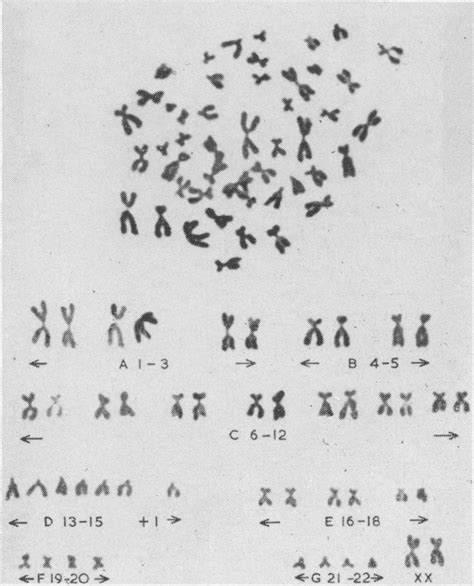 ← A 1-3 → ← B 4-5 →
← C 6-12 →
← D 13-15 +1 → ← E 16-18 →
←F19-20→ ←G 21-22→ XX